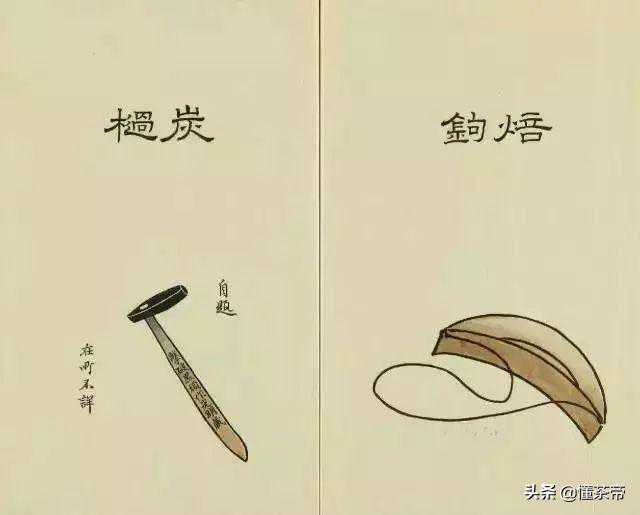 焙鉤
炭檛
自題
在所不詳
头条 @懂茶帝